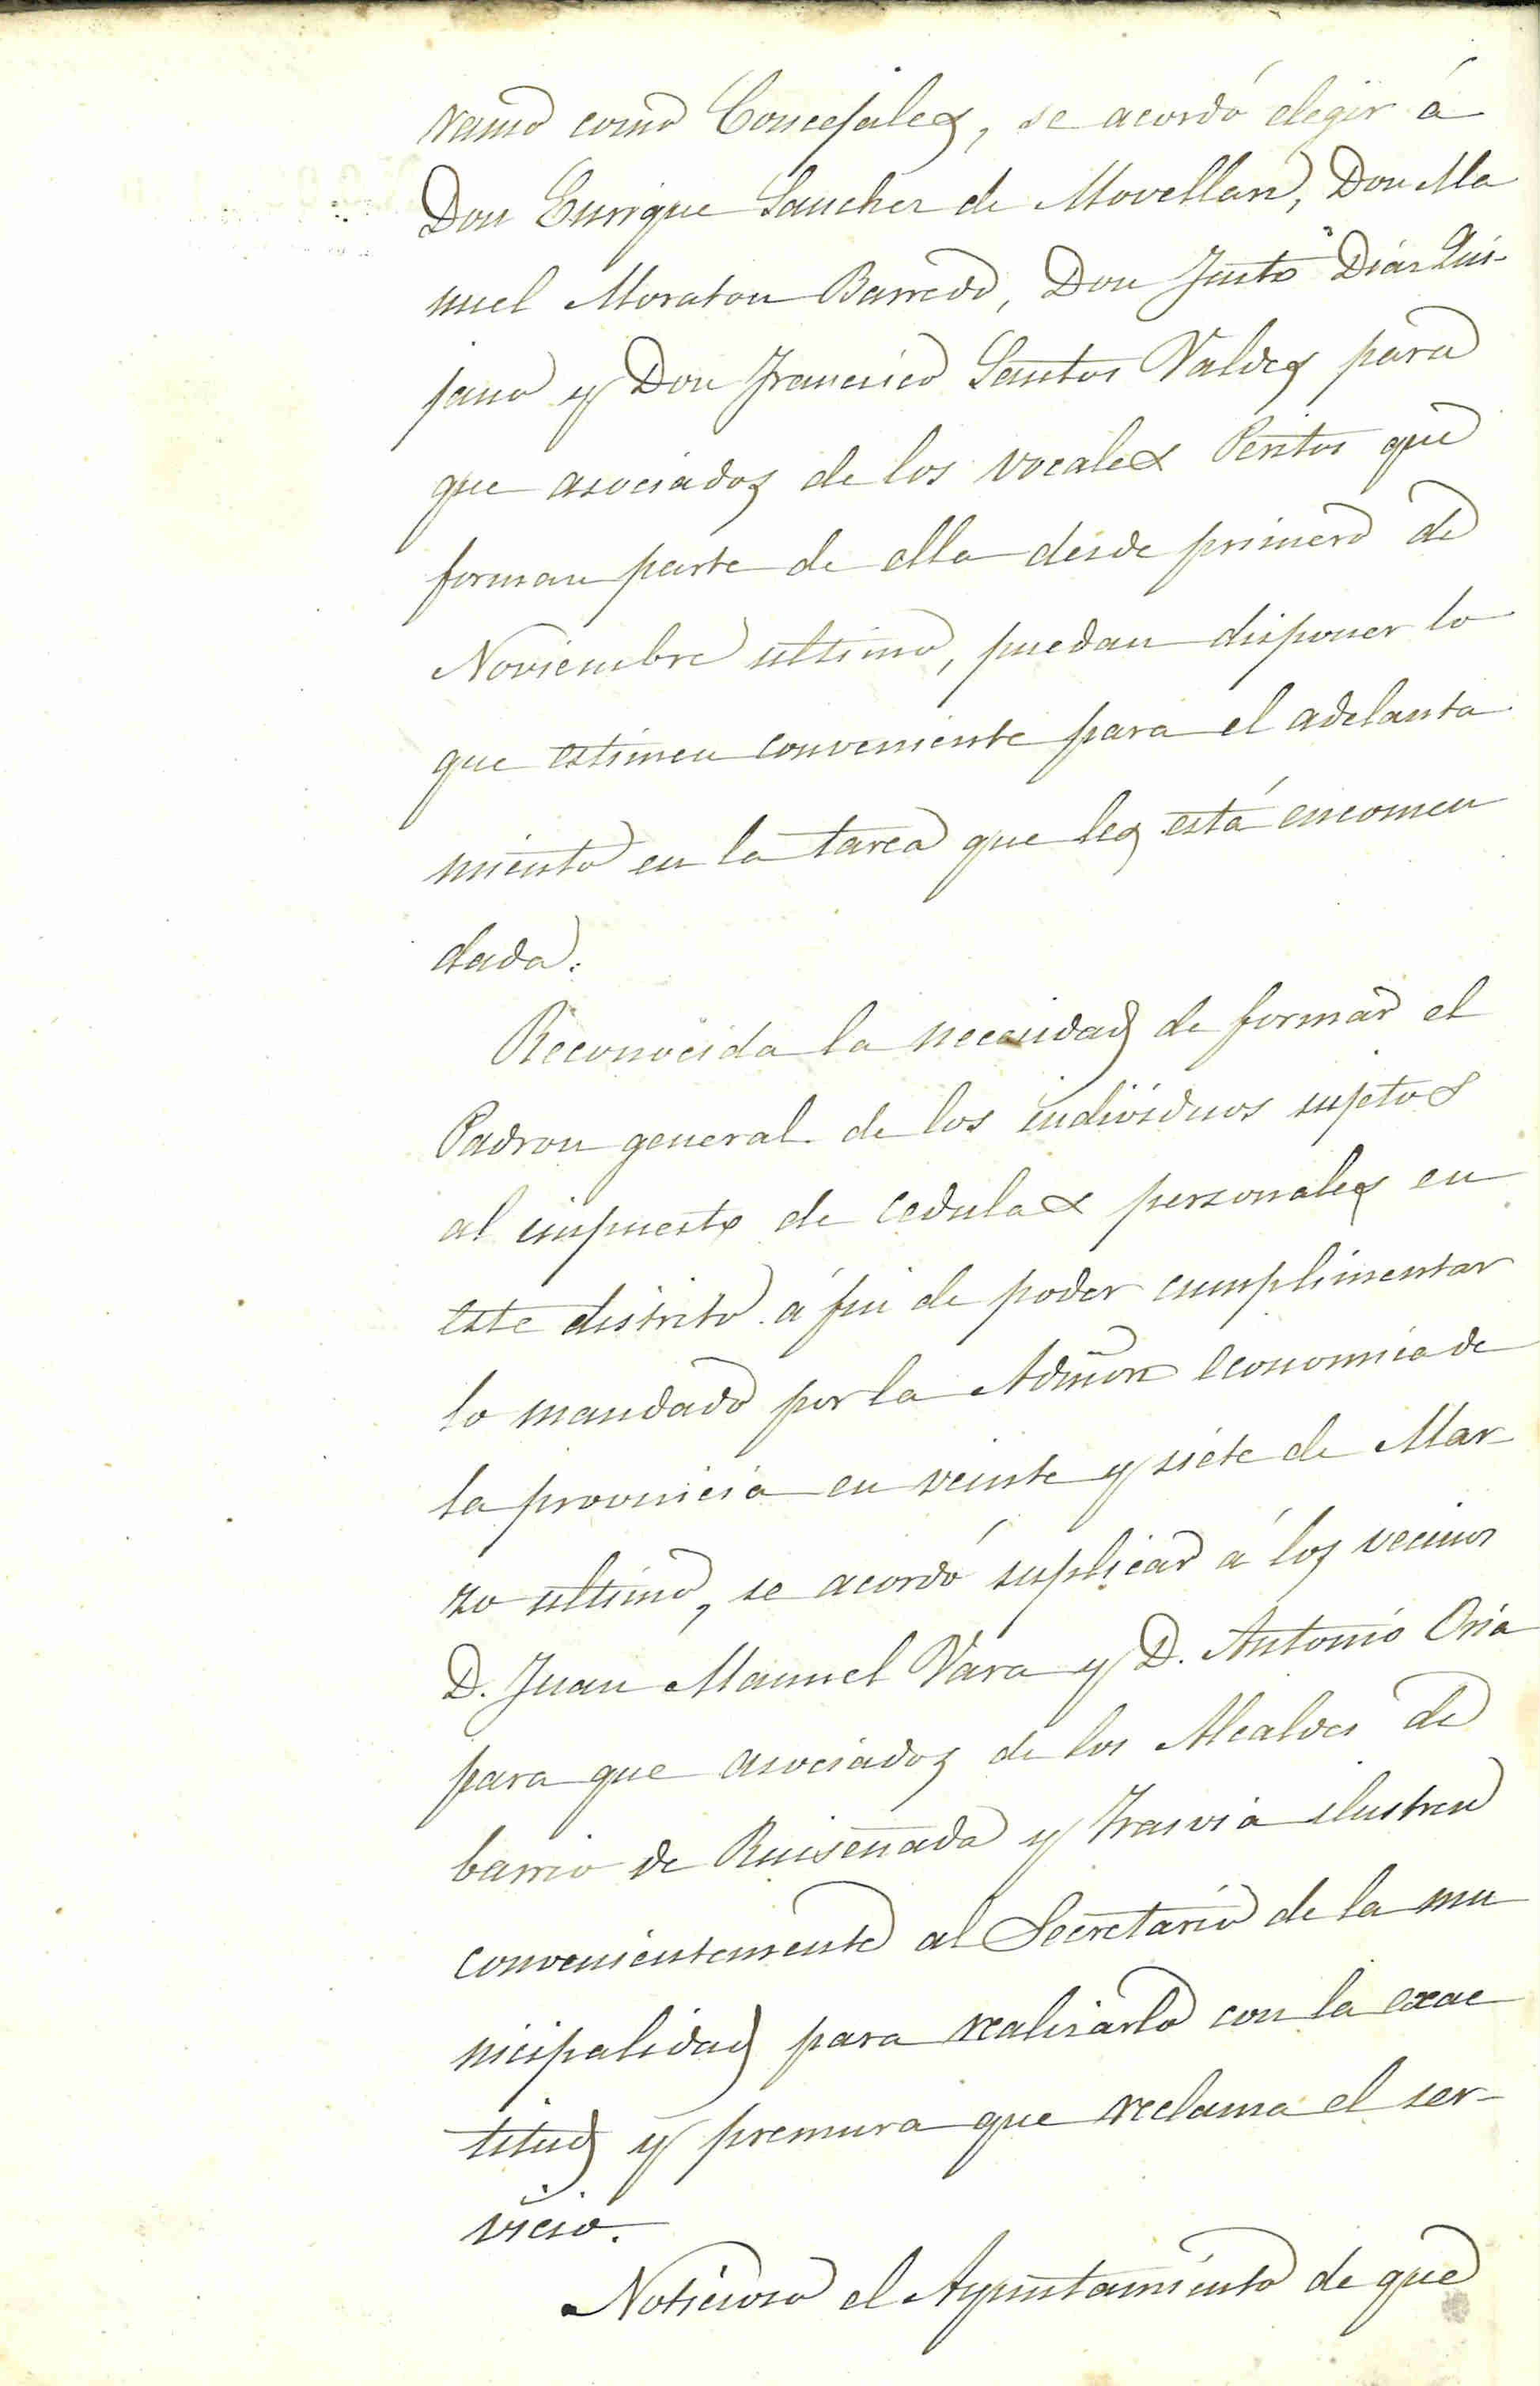 ramo como Concejales, se acordó elegir á
Don Enrique Sanchez de Movellan, Don Ma
nuel Moraton Barredo, Don Justo Diaz Qui-
jano y Don Francisco Santos Valdes para
que asociados de los vocales Peritos que
forman parte de ella desde primero de
Noviembre ultimo, puedan disponer lo
que estimen conveniente para el adelanta
miento en la tarea que les está encomen
dada.
Reconocida la necesidad de formar el
Padron general de los individuos sujetos
al impuesto de cedulas personales en
este distrito á fin de poder cumplimentar
lo mandado por la Admon economica de
la provincia en veinte y siete de Mar-
zo ultimo, se acordó suplicar á los vecinos
D. Juan Manuel Vara y D. Antonio Oria
para que asociados de los Alcaldes de
barrio de Ruiseñada y Trasvia ilustren
convenientemente al Secretario de la mu
nicipalidad para realizarlo con la exac
titud y premura que reclama el ser-
vicio.
Noticioso el Ayuntamiento de que